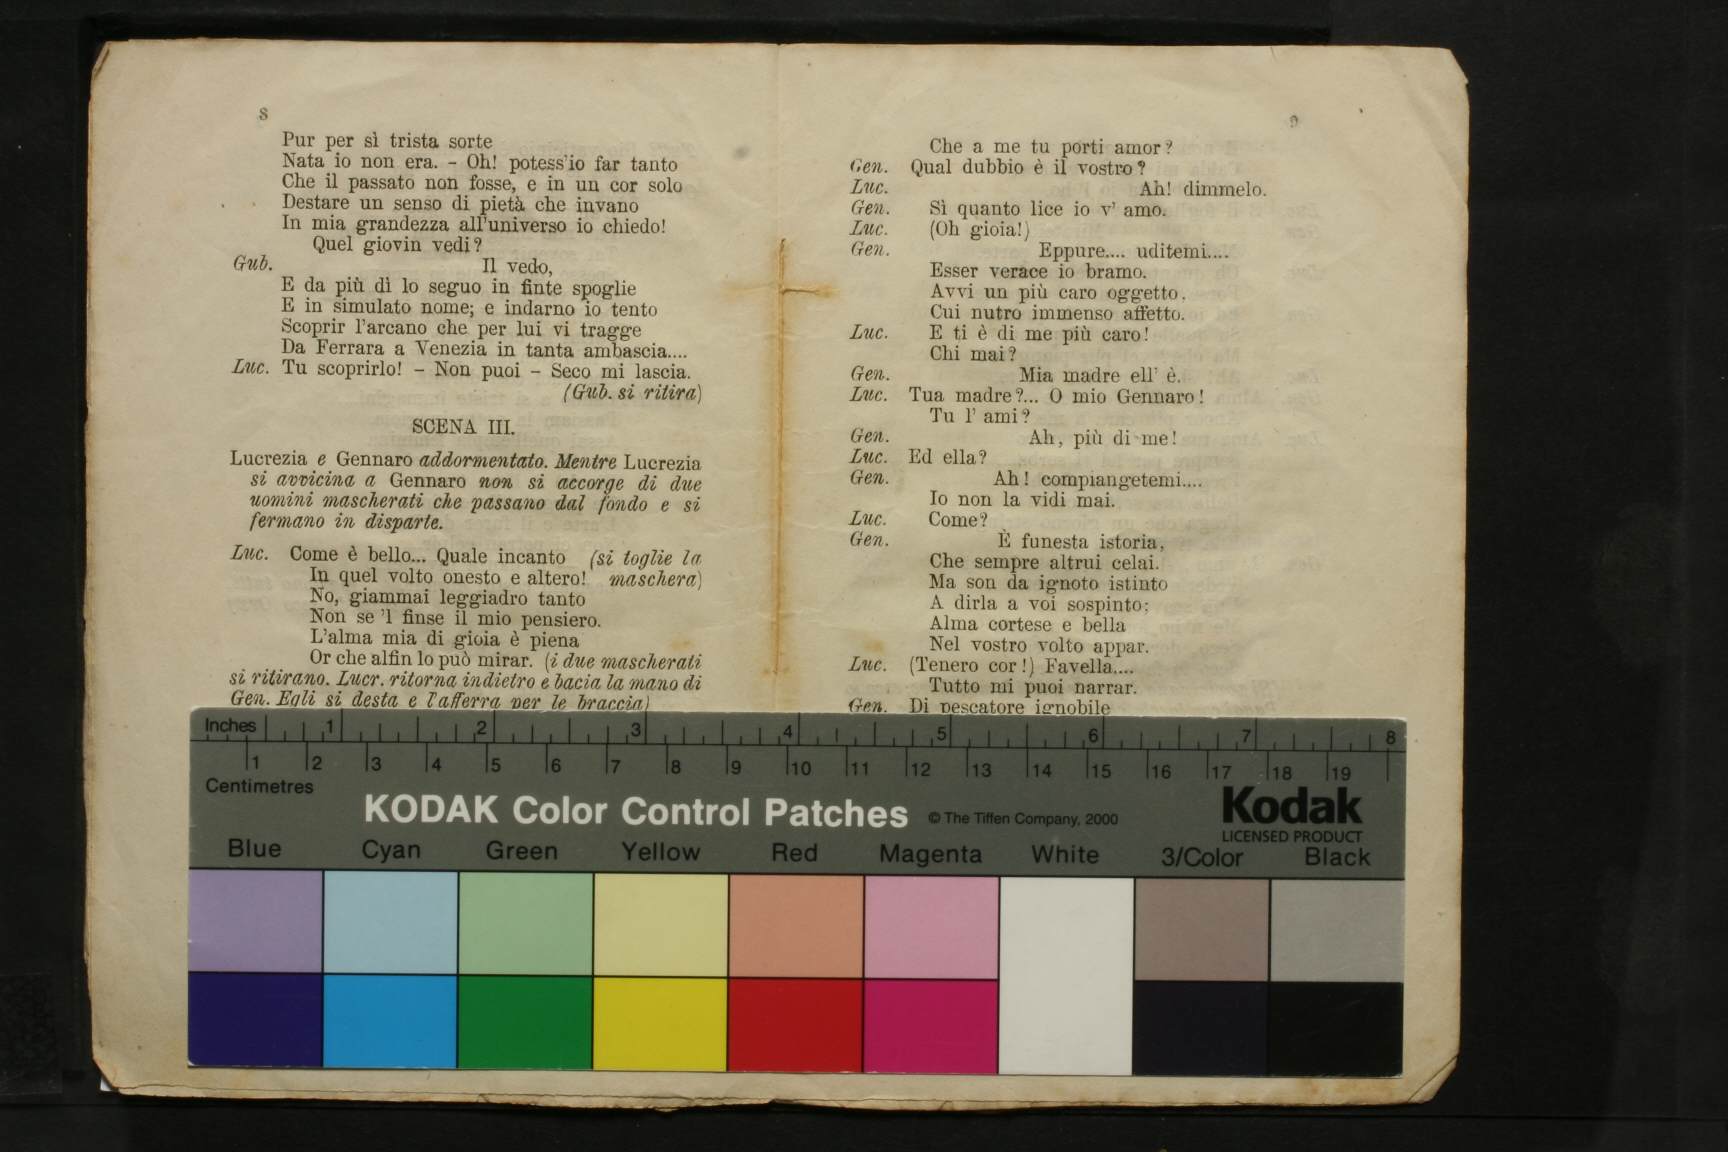 8
Pur per sì trista sorte
Nata io non era. – Oh! potess'io far tanto
Che il passato non fosse, e in un cor solo
Destare un senso di pietà che invano
In mia grandezza all'universo io chiedo!
Quel giovin vedi?
Gub. Il vedo,
E da più dì lo seguo in finte spoglie
E in simulato nome; e indarno io tento
Scoprir l'arcano che per lui vi tragge
Da Ferrara a Venezia in tanta ambascia....
Luc. Tu scoprirlo! – Non puoi – Seco mi lascia.
(Gub. si ritira)
SCENA III.
Lucrezia e Gennaro addormentato. Mentre Lucrezia
si avvicina a Gennaro non si accorge di due
uomini mascherati che passano dal fondo e si
fermano in disparte.
Luc. Come è bello... Quale incanto (si toglie la
In quel volto onesto e altero! maschera)
No, giammai leggiadro tanto
Non se 'l finse il mio pensiero.
L'alma mia di gioia è piena
Or che alfin lo può mirar. (i due mascherati
si ritirano. Lucr. ritorna indietro e bacia la mano di
Gen. Egli si desta e l'afferra per le braccia)
9
Che a me tu porti amor?
Gen. Qual dubbio è il vostro?
Luc. Ah! dimmelo.
Gen. Sì quanto lice io v' amo.
Luc. (Oh gioia!)
Gen. Eppure.... uditemi....
Esser verace io bramo.
Avvi un più caro oggetto,
Cui nutro immenso affetto.
Luc. E ti è di me più caro!
Chi mai?
Gen. Mia madre ell' è.
Luc. Tua madre?... O mio Gennaro!
Tu l' ami?
Gen. Ah, più di me!
Luc. Ed ella?
Gen. Ah! compiangetemi....
Io non la vidi mai.
Luc. Come?
Gen. È funesta istoria,
Che sempre altrui celai.
Ma son da ignoto istinto
A dirla a voi sospinto;
Alma cortese e bella
Nel vostro volto appar.
Luc. (Tenero cor!) Favella....
Tutto mi puoi narrar.
Gen. Di pescatore ignobile
Inches 1 2 3 4 5 6 7 8
1 2 3 4 5 6 7 8 9 10 11 12 13 14 15 16 17 18 19
Centimetres
KODAK Color Control Patches © The Tiffen Company, 2000 Kodak
LICENSED PRODUCT
Blue Cyan Green Yellow Red Magenta White 3/Color Black